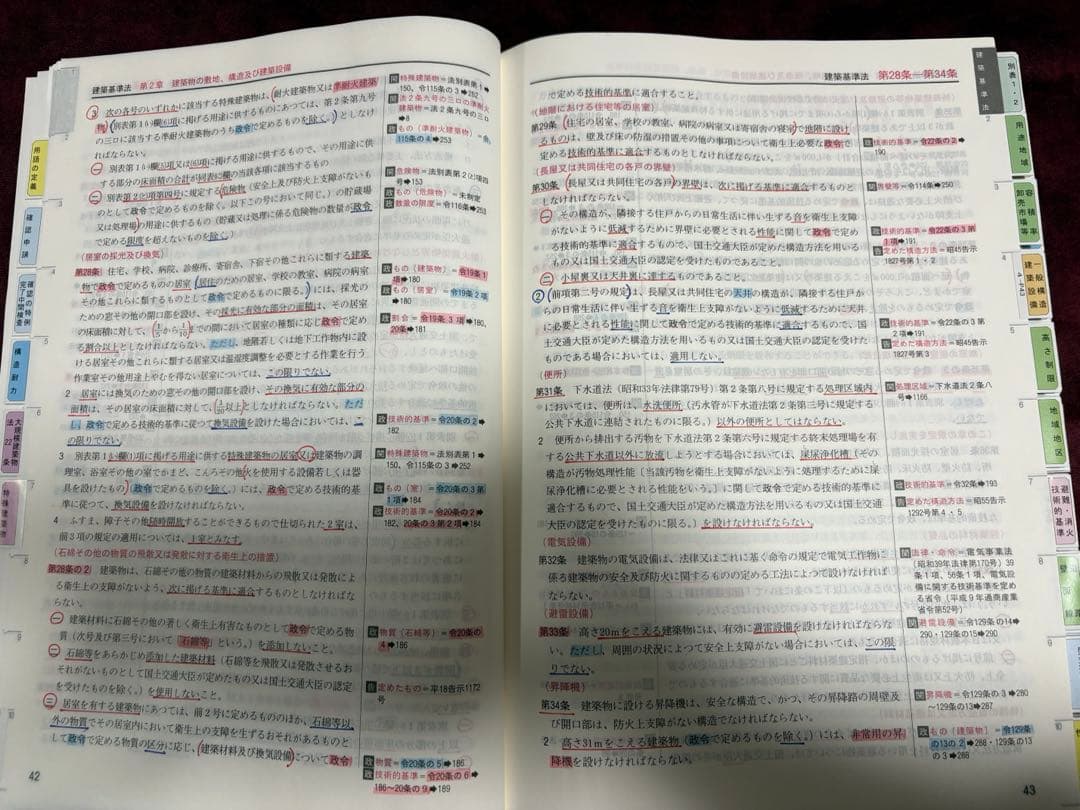 建築基準法 第2章 建築物の敷地、構造及び建築設備
3 次の各号のいずれかに該当する特殊建築物は、耐火建築物又は準耐火建築
物(別表第1(い)欄(6)項に掲げる用途に供するものにあつては、第2条第九号
の三ロに該当する準耐火建築物のうち政令で定めるものを除く。)としなけ
ればならない。
一 別表第1(い)欄(5)項又は(6)項に掲げる用途に供するもので、その用途に供
する部分の床面積の合計が同表(に)欄の当該各項に該当するもの
二 別表第2(と)項第四号に規定する危険物(安全上及び防火上支障がない
ものとして政令で定めるものを除く。以下この号において同じ。)の貯蔵場
又は処理場の用途に供するもの(貯蔵又は処理に係る危険物の数量が政令
で定める限度を超えないものを除く。)
(居室の採光及び換気)
第28条 住宅、学校、病院、診療所、寄宿舎、下宿その他これらに類する建築
物で政令で定めるものの居室(居住のための居室、学校の教室、病院の病室
その他これらに類するものとして政令で定めるものに限る。)には、採光の
ための窓その他の開口部を設け、その採光に有効な部分の面積は、その居室
の床面積に対して、1/5から1/10までの間において居室の種類に応じ政令で定め
る割合以上としなければならない。ただし、地階若しくは地下工作物内に設
ける居室その他これらに類する居室又は温湿度調整を必要とする作業を行う
作業室その他用途上やむを得ない居室については、この限りでない。
2 居室には換気のための窓その他の開口部を設け、その換気に有効な部分の
面積は、その居室の床面積に対して、1/20以上としなければならない。ただ
し、政令で定める技術的基準に従つて換気設備を設けた場合においては、こ
の限りでない。
3 別表第1(い)欄(1)項に掲げる用途に供する特殊建築物の居室又は建築物の調
理室、浴室その他の室でかまど、こんろその他火を使用する設備若しくは器
具を設けたもの(政令で定めるものを除く。)には、政令で定める技術的基
準に従つて、換気設備を設けなければならない。
4 ふすま、障子その他随時開放することができるもので仕切られた2室は、
前3項の規定の適用については、1室とみなす。
(石綿その他の物質の飛散又は発散に対する衛生上の措置)
第28条の2 建築物は、石綿その他の物質の建築材料からの飛散又は発散によ
る衛生上の支障がないよう、次に掲げる基準に適合するものとしなければな
らない。
一 建築材料に石綿その他の著しく衛生上有害なものとして政令で定める物
質(次号及び第三号において「石綿等」という。)を添加しないこと。
二 石綿等をあらかじめ添加した建築材料(石綿等を飛散又は発散させるお
それがないものとして国土交通大臣が定めたもの又は国土交通大臣の認定
を受けたものを除く。)を使用しないこと。
三 居室を有する建築物にあつては、前2号に定めるもののほか、石綿等以
外の物質でその居室内において衛生上の支障を生ずるおそれがあるものと
して政令で定める物質の区分に応じ、建築材料及び換気設備について政令
42
関 特殊建築物=法別表第1➡
150、令115条の3➡252
関 法2条九号の三ロの準耐火
建築物=法2条九号の三ロ
➡8
政 もの(準耐火建築物)=令
115条の4➡253
関 危険物=法別表第2(と)項四
号➡153
政 もの(危険物)=未制定
政 数量の限度=令116条➡253
政 もの(建築物)=令19条1
項➡180
政 もの(居室)=令19条2項
➡180
政 割合=令19条3項➡180、
20条➡181
政 技術的基準=令20条の2➡
182
関 特殊建築物=法別表第1➡
150、令115条の3➡252
政 もの(室)=令20条の3第1
項➡184
政 技術的基準=令20条の2➡
182、20条の3第2項➡184
政 物質(石綿等)=令20条の
4➡186
告 定めたもの=平18告示1172
号
政 物質=令20条の5➡186
政 技術的基準=令20条の6➡
186~20条の9➡189
用語の定義
確認申請
確認の特例
完了中間検査
構造耐力
大規模建築物
法22条
特殊建築物
建築基準法 第28条―第34条
で定める技術的基準に適合すること。
(地階における住宅等の居室)
第29条 住宅の居室、学校の教室、病院の病室又は寄宿舎の寝室で地階に設け
るものは、壁及び床の防湿の措置その他の事項について衛生上必要な政令で
定める技術的基準に適合するものとしなければならない。
(長屋又は共同住宅の各戸の界壁)
第30条 長屋又は共同住宅の各戸の界壁は、次に掲げる基準に適合するものと
しなければならない。
一 その構造が、隣接する住戸からの日常生活に伴い生ずる音を衛生上支障
がないように低減するために界壁に必要とされる性能に関して政令で定め
る技術的基準に適合するもので、国土交通大臣が定めた構造方法を用いる
もの又は国土交通大臣の認定を受けたものであること。
二 小屋裏又は天井裏に達するものであること。
2 前項第二号の規定は、長屋又は共同住宅の天井の構造が、隣接する住戸か
らの日常生活に伴い生ずる音を衛生上支障がないように低減するために天井
に必要とされる性能に関して政令で定める技術的基準に適合するもので、国
土交通大臣が定めた構造方法を用いるもの又は国土交通大臣の認定を受けた
ものである場合においては、適用しない。
(便所)
第31条 下水道法(昭和33年法律第79号)第2条第八号に規定する処理区域内
においては、便所は、水洗便所(汚水管が下水道法第2条第三号に規定する
公共下水道に連結されたものに限る。)以外の便所としてはならない。
2 便所から排出する汚物を下水道法第2条第六号に規定する終末処理場を有
する公共下水道以外に放流しようとする場合においては、屎尿浄化槽(その
構造が汚物処理性能(当該汚物を衛生上支障がないように処理するために屎
尿浄化槽に必要とされる性能をいう。)に関して政令で定める技術的基準に
適合するもので、国土交通大臣が定めた構造方法を用いるもの又は国土交通
大臣の認定を受けたものに限る。)を設けなければならない。
(電気設備)
第32条 建築物の電気設備は、法律又はこれに基く命令の規定で電気工作物に
係る建築物の安全及び防火に関するものの定める工法によつて設けなければ
ならない。
(避雷設備)
第33条 高さ20mをこえる建築物には、有効に避雷設備を設けなければならな
い。ただし、周囲の状況によつて安全上支障がない場合においては、この限
りでない。
(昇降機)
第34条 建築物に設ける昇降機は、安全な構造で、かつ、その昇降路の周壁及
び開口部は、防火上支障がない構造でなければならない。
2 高さ31mをこえる建築物(政令で定めるものを除く。)には、非常用の昇
降機を設けなければならない。
43
政 技術的基準=令22条の2➡
190
関 界壁等=令114条➡250
政 技術的基準=令22条の3第
1項➡191
告 定めた構造方法=昭45告示
1827号第1・2
政 技術的基準=令22条の3第
2項➡191
告 定めた構造方法=昭45告示
1827号第3
関 処理区域=下水道法2条八
号➡1166
政 技術的基準=令32条➡193
告 定めた構造方法=昭55告示
1292号第4・5
関 法律・命令=電気事業法
(昭和39年法律第170号)39
条1項、56条1項、電気設
備に関する技術基準を定め
る省令(平成9年通商産業
省令第52号)
関 避雷設備=令129条の14➡
290・129条の15➡290
関 昇降機=令129条の3➡280
~129条の13➡287
政 もの〔建築物〕=令129条
の13の2➡288・129条の13
の3➡288
建築基準法
別表1・2
用途地域
容積率
卸売市場等
一般構造
建築設備
高さ制限
地域地区
避難・消火
技術的基準